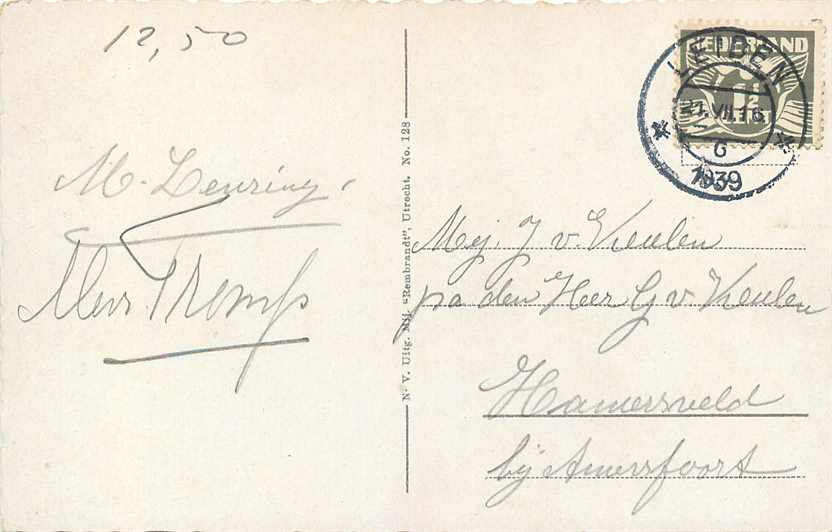 12,50
NEDERLAND
1½
LEIDEN
VII.16
6
1939
M. Leuring,
Mevr. Tromp
N.V. Uitg. Mij. "Rembrandt", Utrecht. No. 128
Mej. J v. Keulen
pa den Heer G v. Keulen
Hamersveld
bij Amersfoort